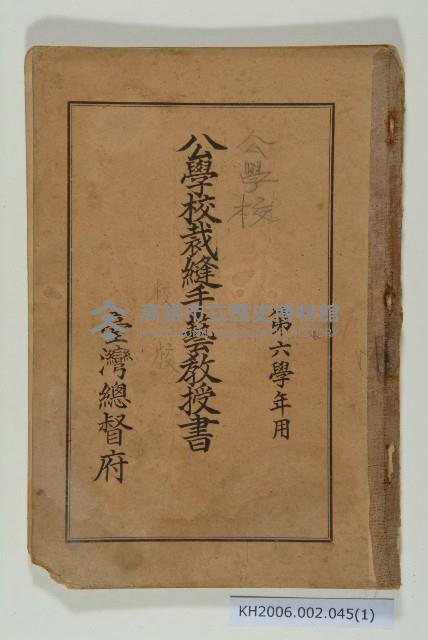 公學校
第六學年用
公學校裁縫手藝教授書
臺灣總督府
校
校
高雄市立歷史博物館
KH2006.002.045(1)